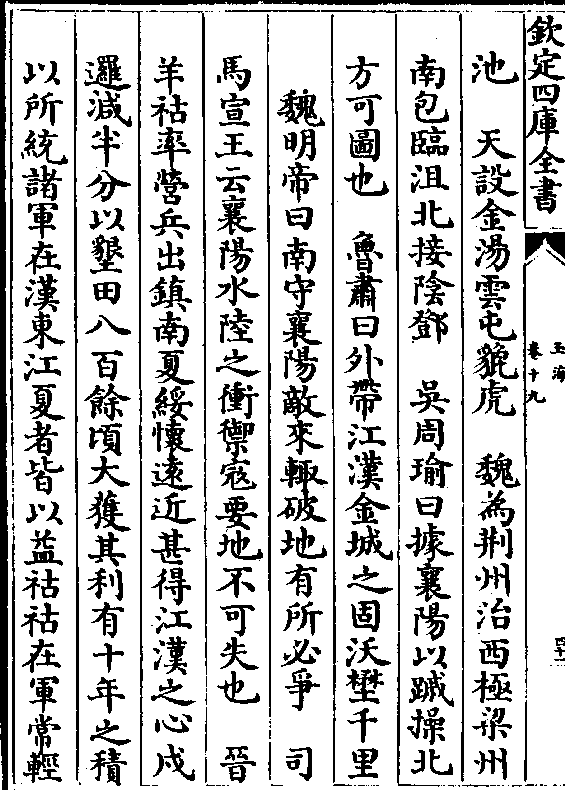 欽定四庫全書
玉海
卷十九
池 天設金湯雲屯貔虎 魏為荆州治西極梁州
南包臨沮北接陰鄧 吳周瑜曰據襄陽以蹙操北
方可圖也 魯肅曰外帶江漢金城之固沃壄千里
魏明帝曰南守襄陽敵來輙破地有所必爭 司
馬宣王云襄陽水陸之衝禦寇要地不可失也 晉
羊祜率營兵出鎮南夏綏懷遠近甚得江漢之心戍
邏減半分以墾田八百餘頃大獲其利有十年之積
以所統諸軍在漢東江夏者皆以益祜祜在軍常輕